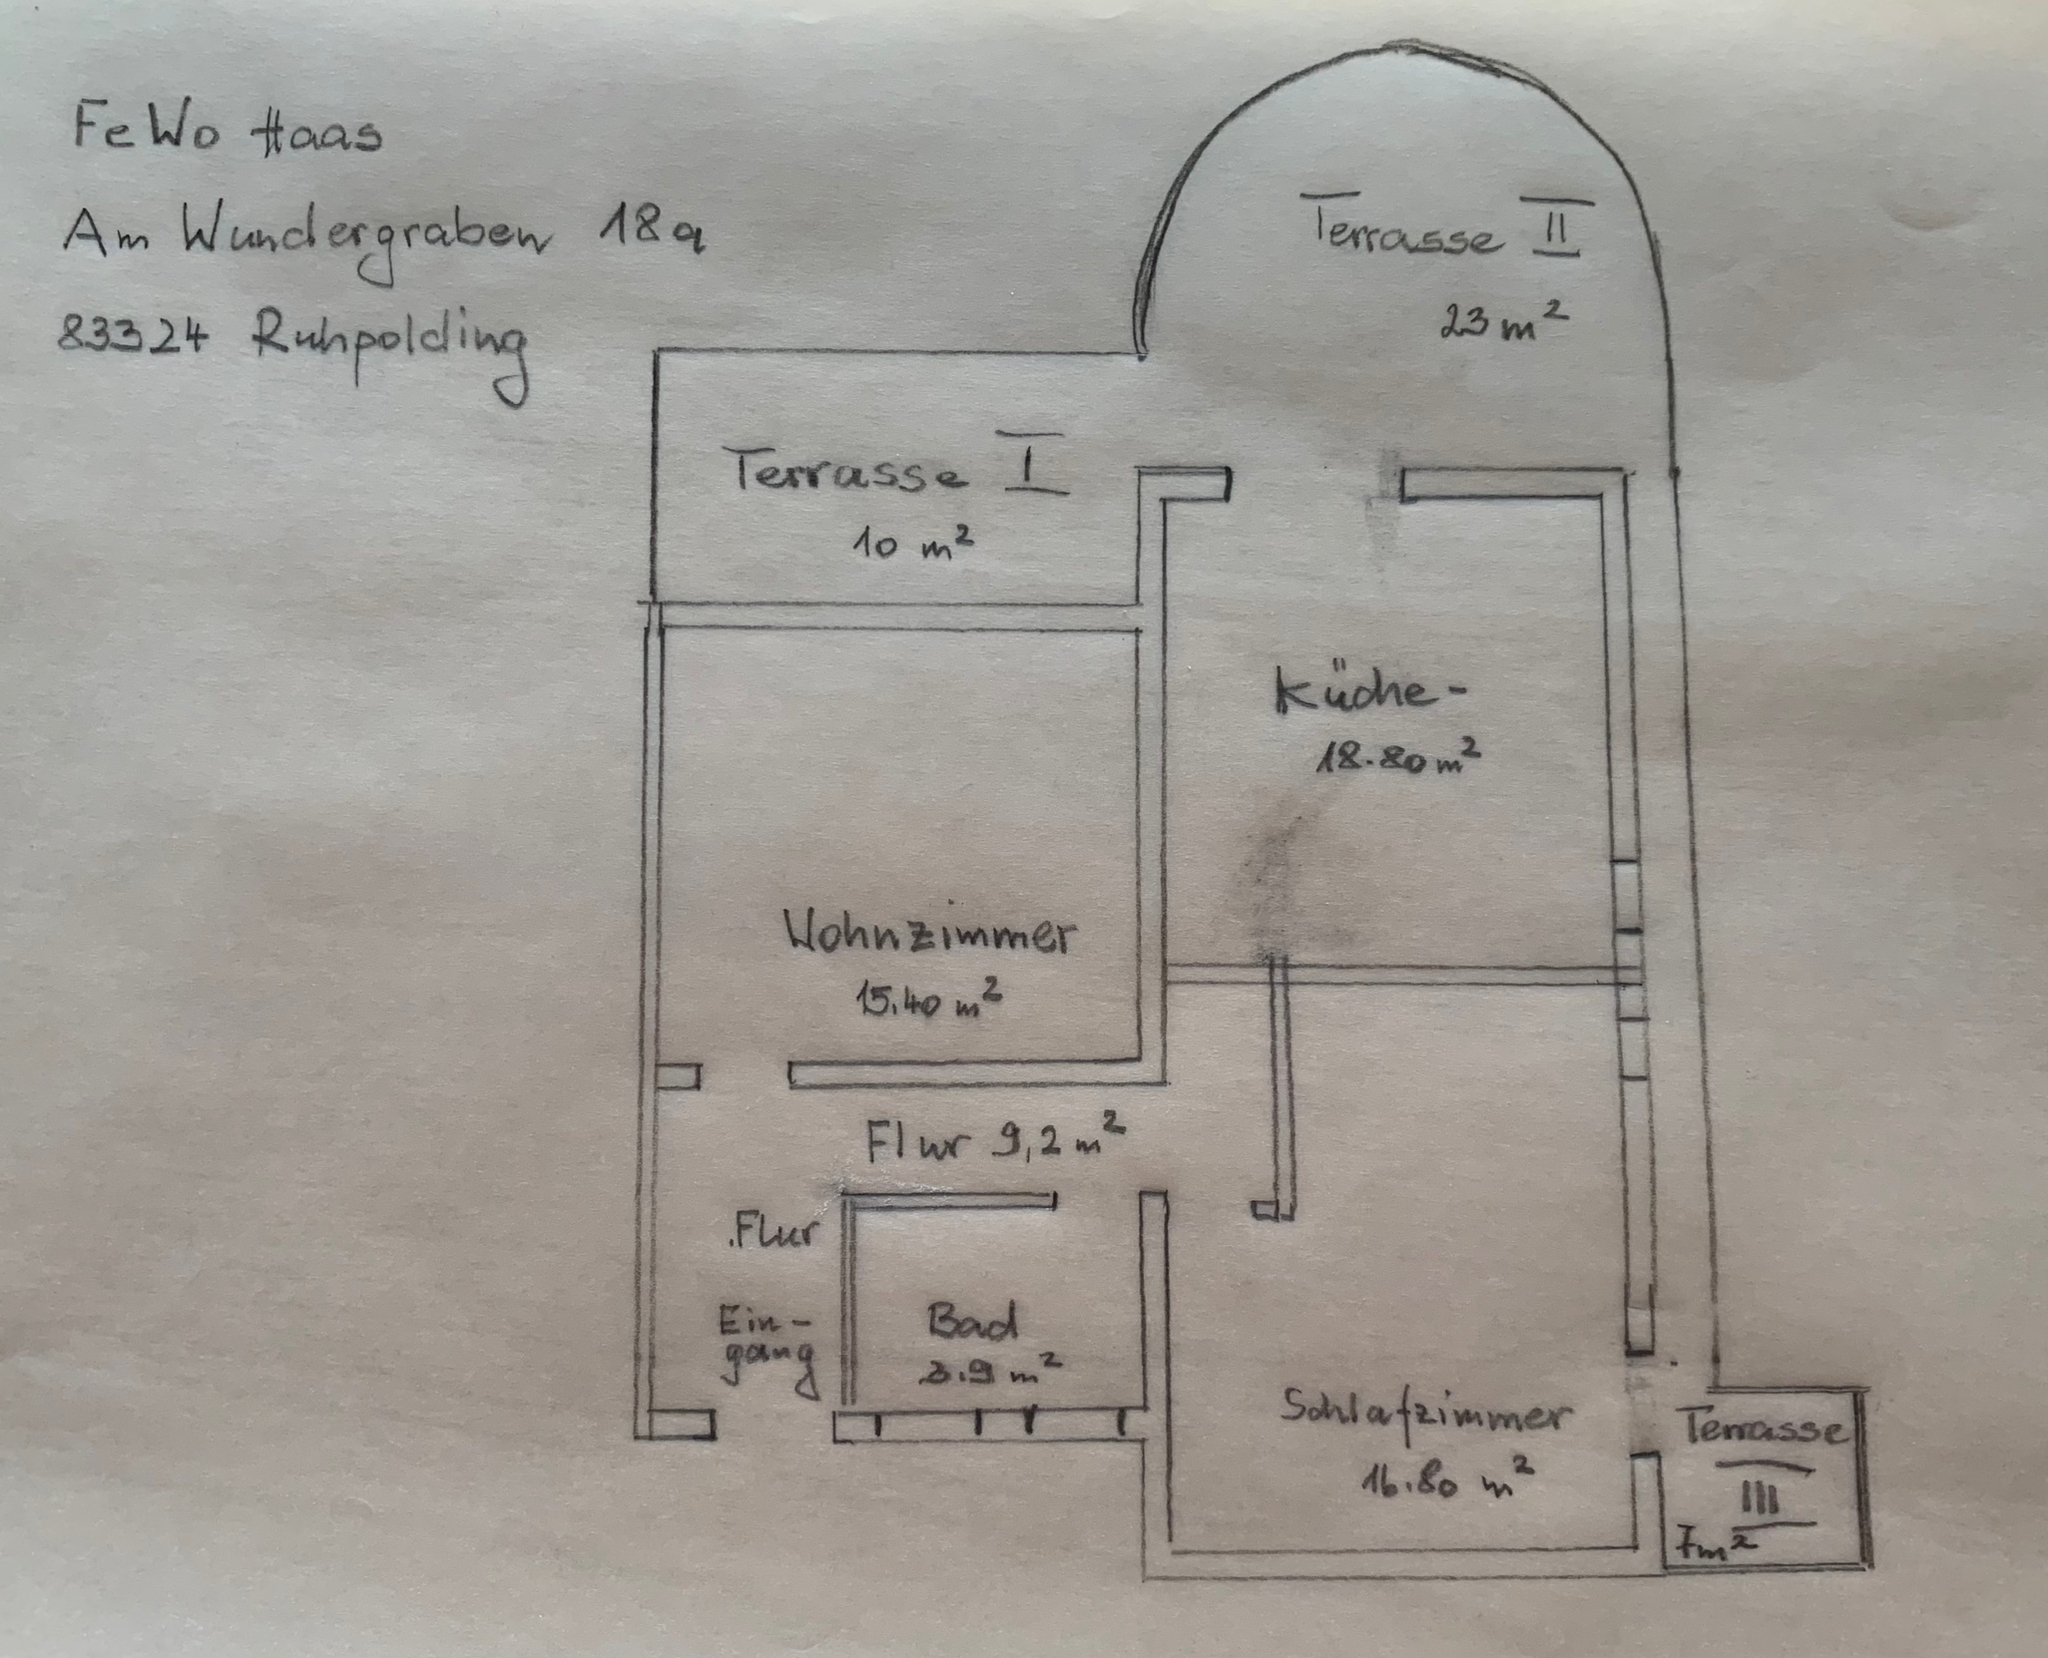 FeWo Haas
Am Wundergraben 18a
83324 Ruhpolding
Terrasse II
23 m²
Terrasse I
10 m²
Küche-
18.80 m²
Wohnzimmer
15.40 m²
Flur 9,2 m²
.Flur
Ein-
gang
Bad
3.9 m²
Schlafzimmer
16.80 m²
Terrasse
III
7m²